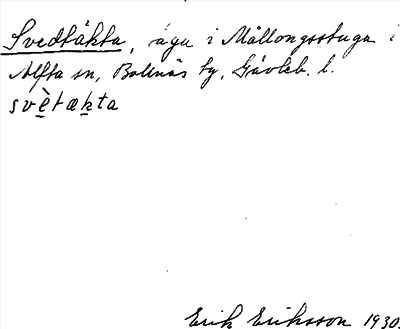 Svedtäkta, äga i Mållongsstuga i
Alfta sn, Bollnäs tg, Gävleb. l.
svètækta
Erik Eriksson 1930.